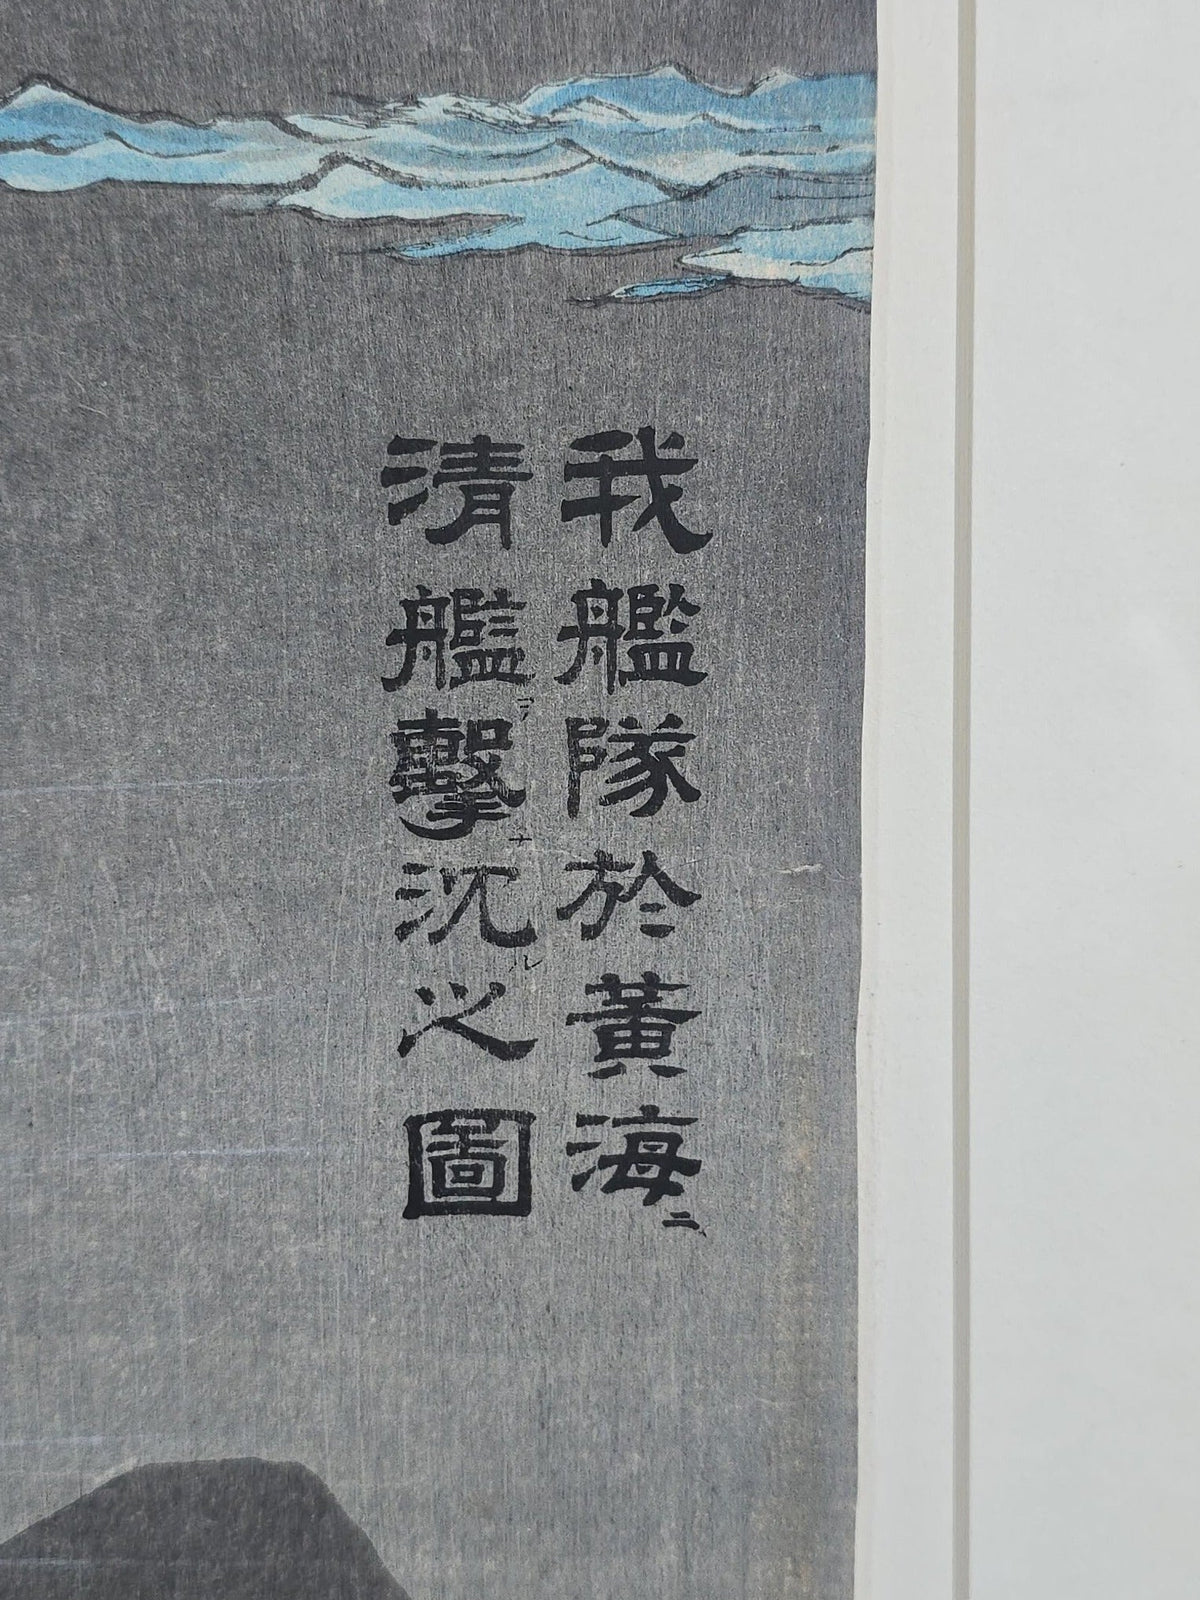 我艦隊於黄海ニ
清艦ヲ擊ナ沈ル之圖